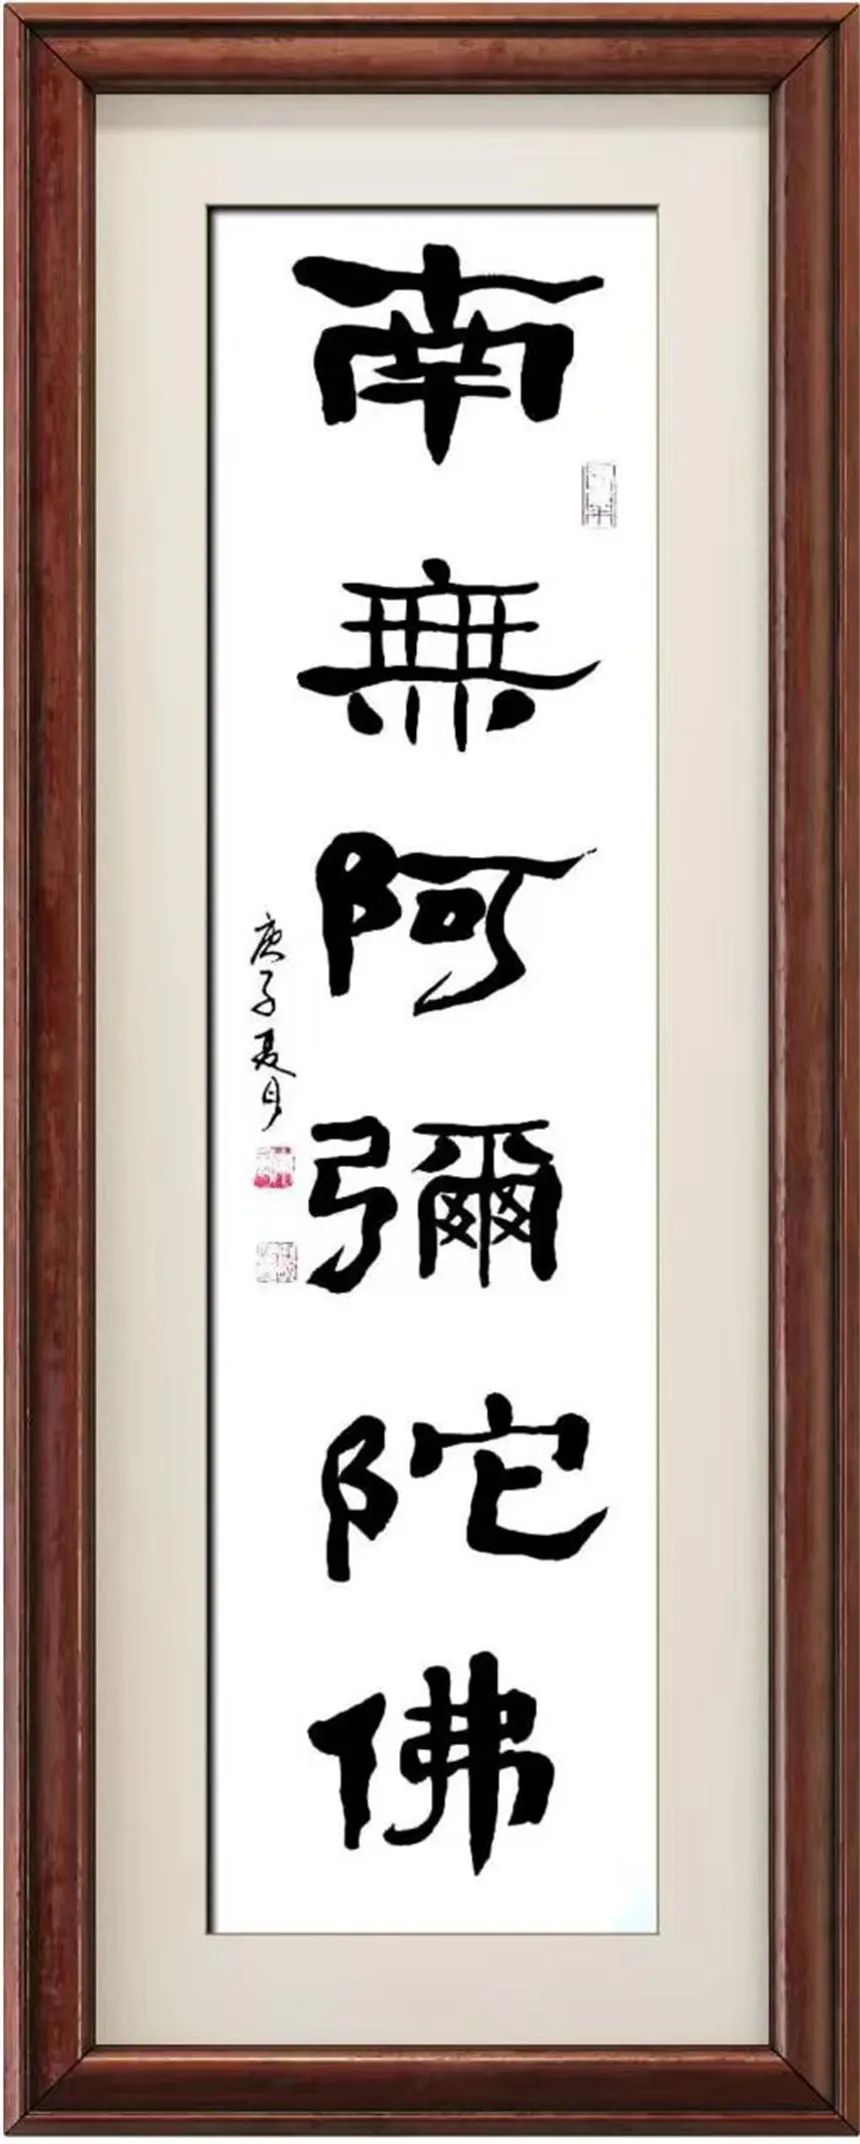 南無阿彌陀佛
庚子夏月